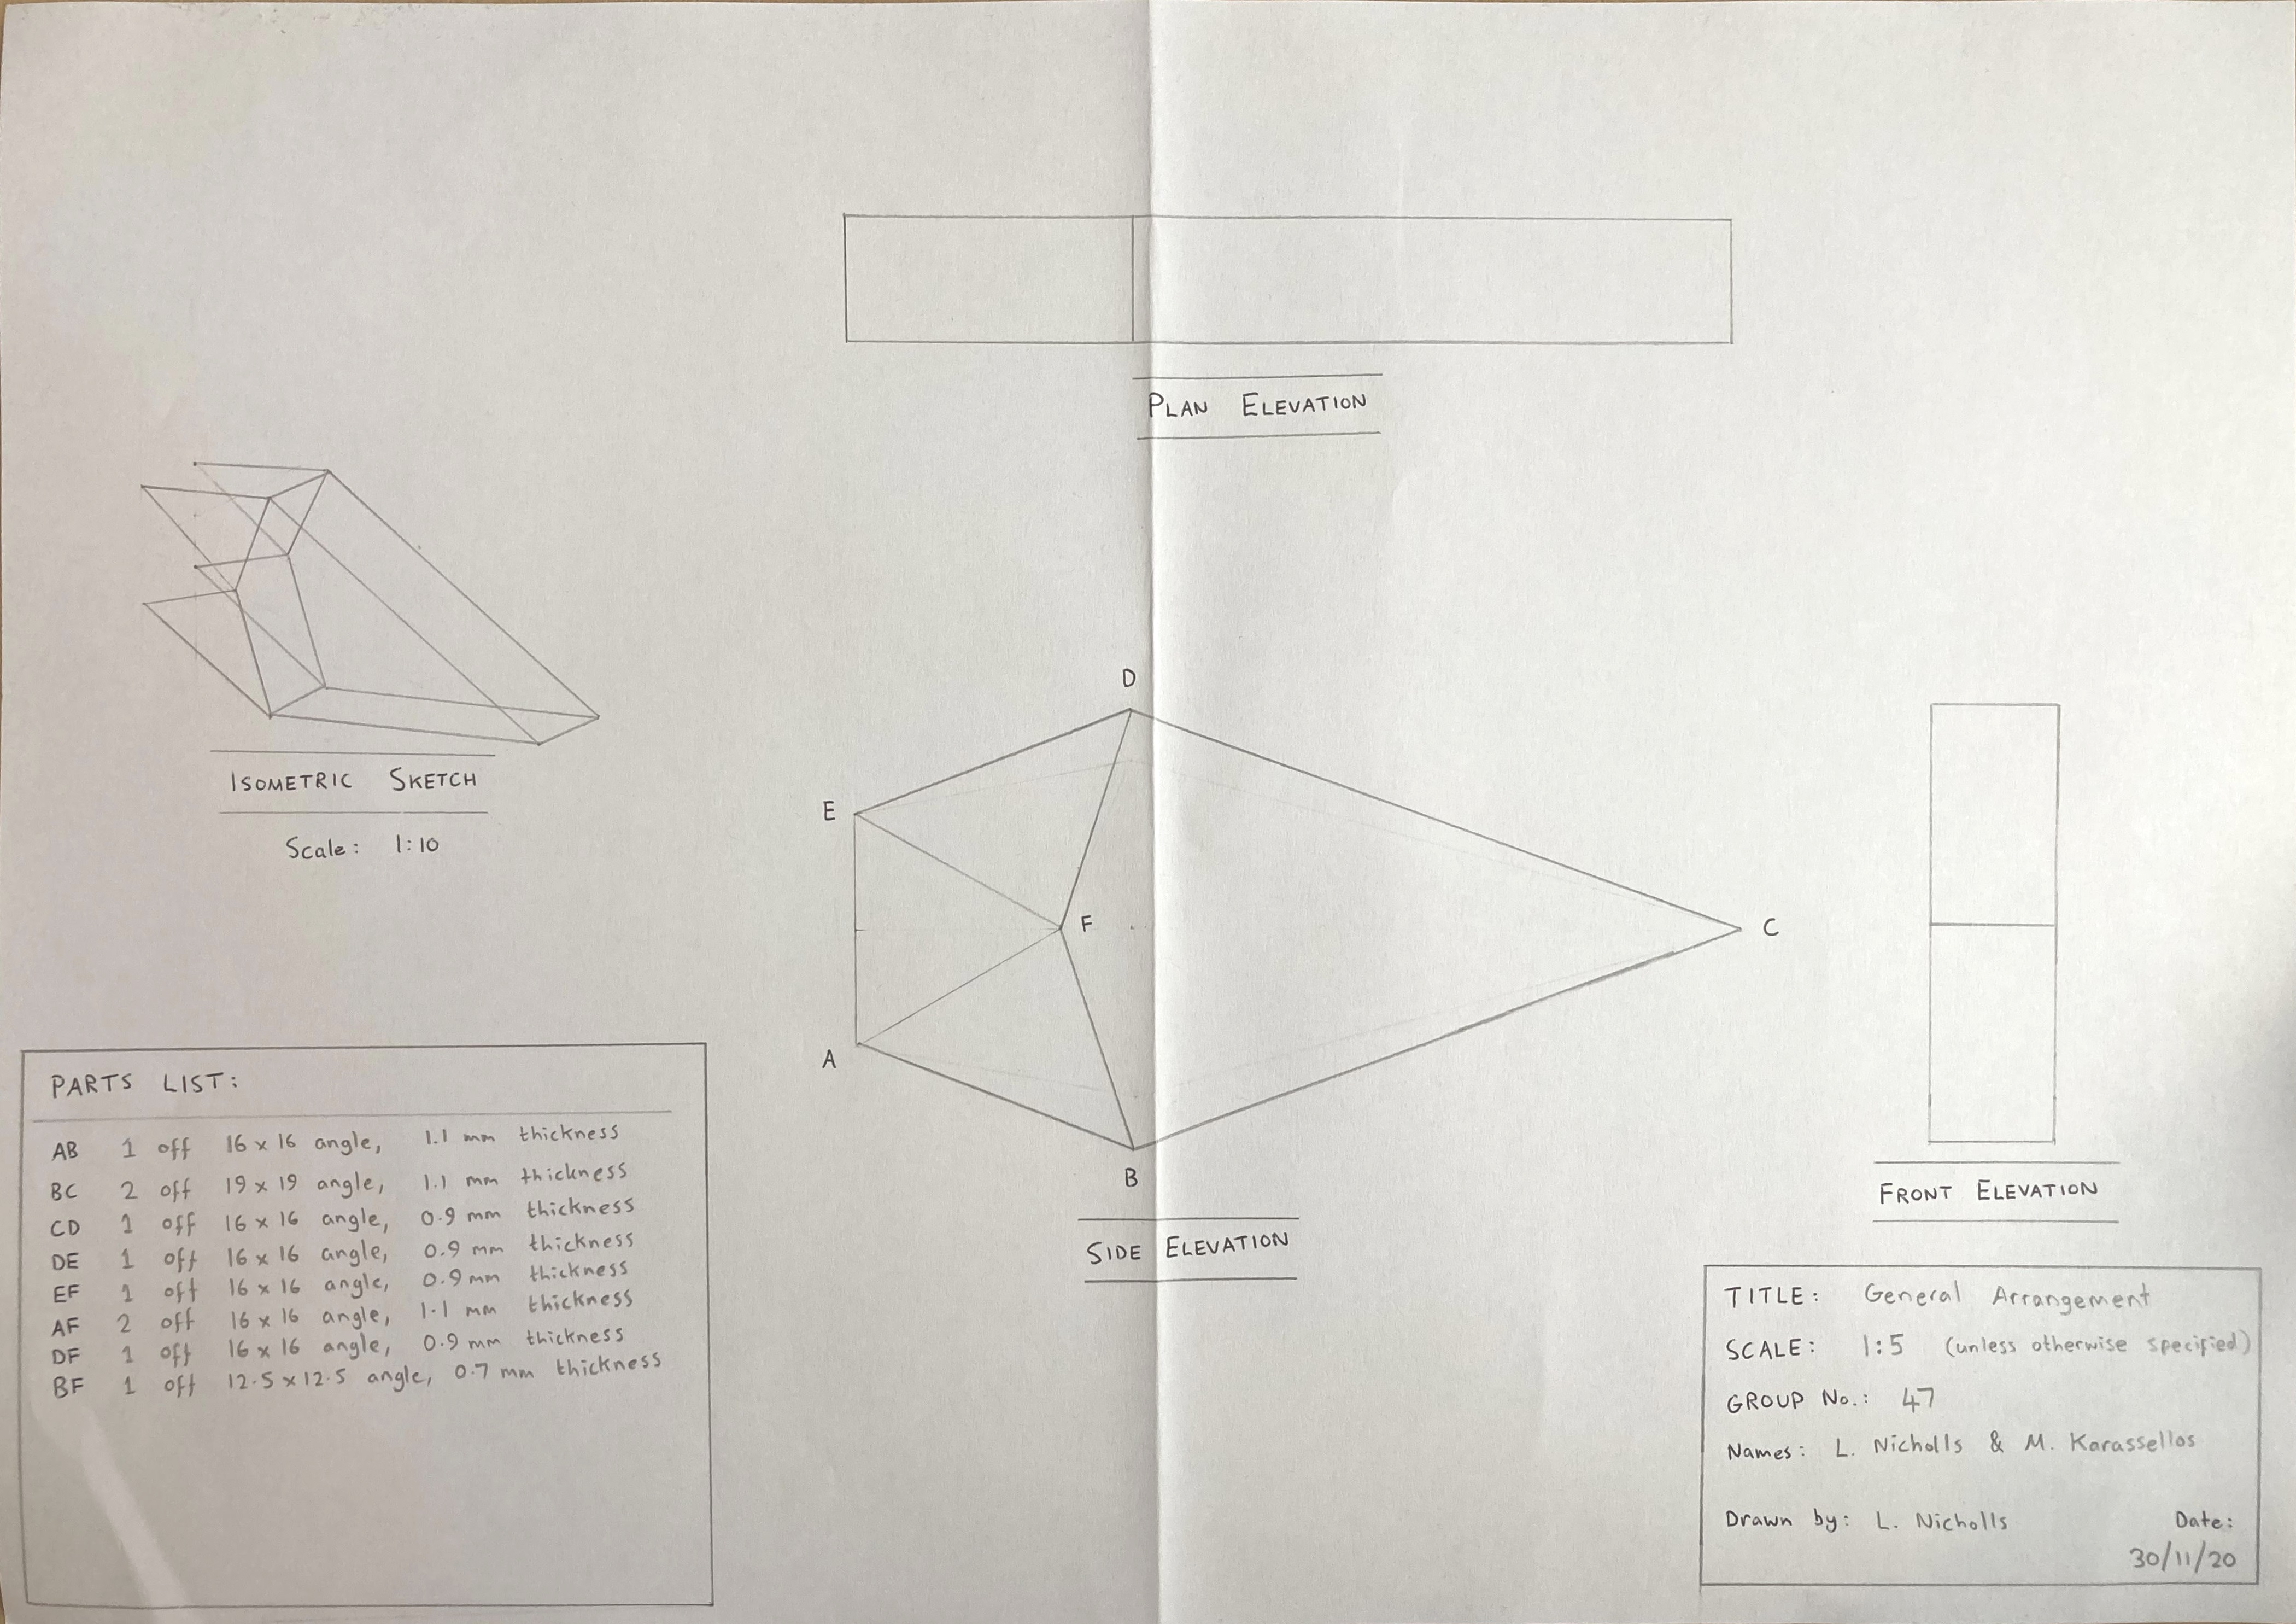 PLAN ELEVATION
ISOMETRIC SKETCH
Scale: 1:10
D
E
F
C
A
B
SIDE ELEVATION
FRONT ELEVATION
PARTS LIST:
AB 1 off 16 x 16 angle, 1.1 mm thickness
BC 2 off 19 x 19 angle, 1.1 mm thickness
CD 1 off 16 x 16 angle, 0.9 mm thickness
DE 1 off 16 x 16 angle, 0.9 mm thickness
EF 1 off 16 x 16 angle, 0.9 mm thickness
AF 2 off 16 x 16 angle, 1.1 mm thickness
DF 1 off 16 x 16 angle, 0.9 mm thickness
BF 1 off 12.5 x 12.5 angle, 0.7 mm thickness
TITLE: General Arrangement
SCALE: 1:5 (unless otherwise specified)
GROUP No.: 47
Names: L. Nicholls & M. Karassellos
Drawn by: L. Nicholls Date:
30/11/20